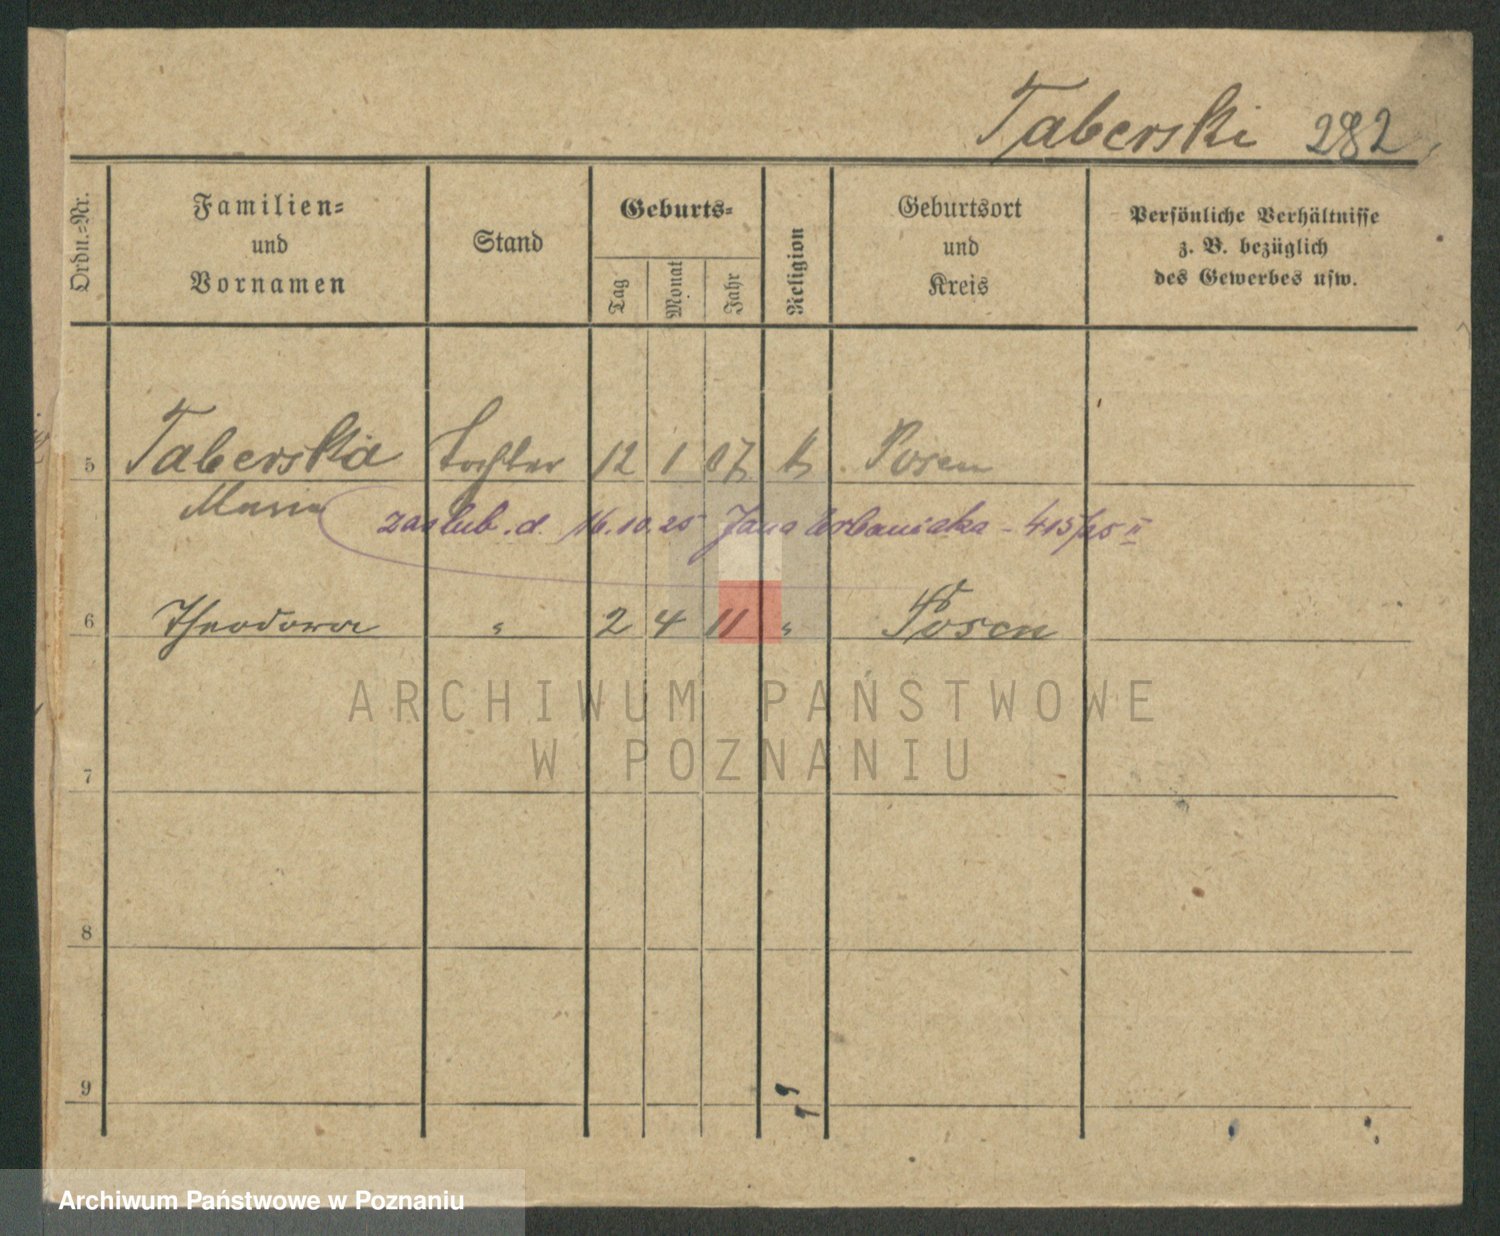 Taberski 282
Ordn.=Nr.
Familien=
und
Vornamen
Stand
Geburts=
Tag
Monat
Jahr
Religion
Geburtsort
und
Kreis
Persönliche Verhältnisse
z. B. bezüglich
des Gewerbes usw.
5 Taberska Tochter 12 1 07 k Posen
Maria
zaślub. d. 16.10.25 Jana Urbaniaka - 415/25 II
6 Theodora " 2 4 11 " Posen
ARCHIWUM PAŃSTWOWE
W POZNANIU
7
8
9
Archiwum Państwowe w Poznaniu